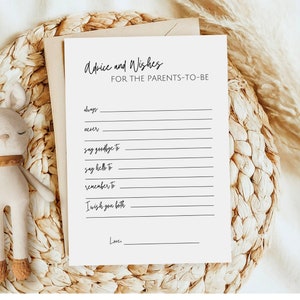 Advice and Wishes
FOR THE PARENTS-TO-BE
always
never
say goodbye to
say hello to
remember to
I wish you both
Love,